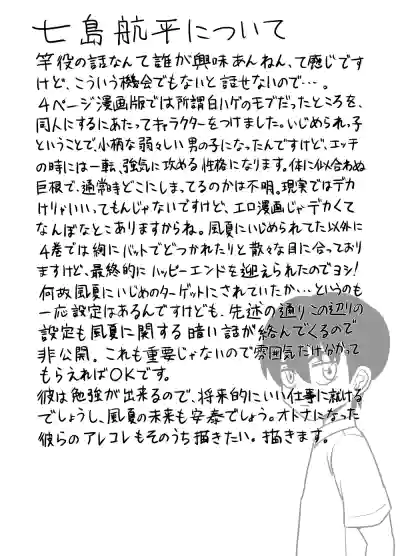 七島航平について
竿役の話なんて誰が興味あんねん、て感じです
けど、こういう機会でもないと話せないので…。
4ページ漫画版では所謂白ハゲのモブだったところを、
同人にするにあたってキャラクターをつけました。いじめられっ子
ということで、小柄な弱々しい男の子になったんですけど、エッチ
の時には一転、強気に攻める性格になります。体に似合わぬ
巨根で、通常時どこにしまってるのかは不明。現実ではデカ
けりゃいいってもんじゃないですけど、エロ漫画じゃデカくて
なんぼなとこありますからね。風夏にいじめられてた以外に
4巻では絢にバットでどつかれたりと散々な目に合っており
ますけど、最終的にハッピーエンドを迎えられたのでヨシ!
何故風夏にいじめのターゲットにされていたか…というのも
一応設定はあるんですけども、先述の通りこの辺りの
設定も風夏に関する暗い話が絡んでくるので
非公開。これも重要じゃないので雰囲気だけ分かって
もらえればOKです。
彼は勉強が出来るので、将来的にいい仕事に就ける
でしょうし、風夏の未来も安泰でしょう。オトナになった
彼らのアレコレもそのうち描きたい。描きます。